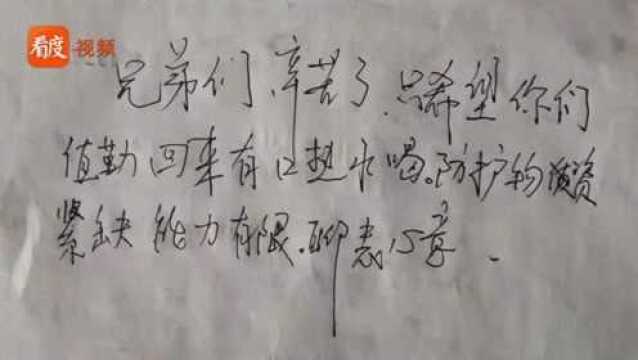 看度 视频
兄弟们,辛苦了,只希望你们
值勤回来有口热水喝。防护物资
紧缺 能力有限.聊表心意.